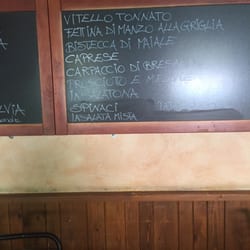 VITELLO TONNATO
FETTINA DI MANZO ALLA GRIGLIA
BISTECCA DI MAIALE
CAPRESE
CARPACCIO DI
PROSCIUTTO E
INSALATONA
SPINACI
INSALATA MISTA